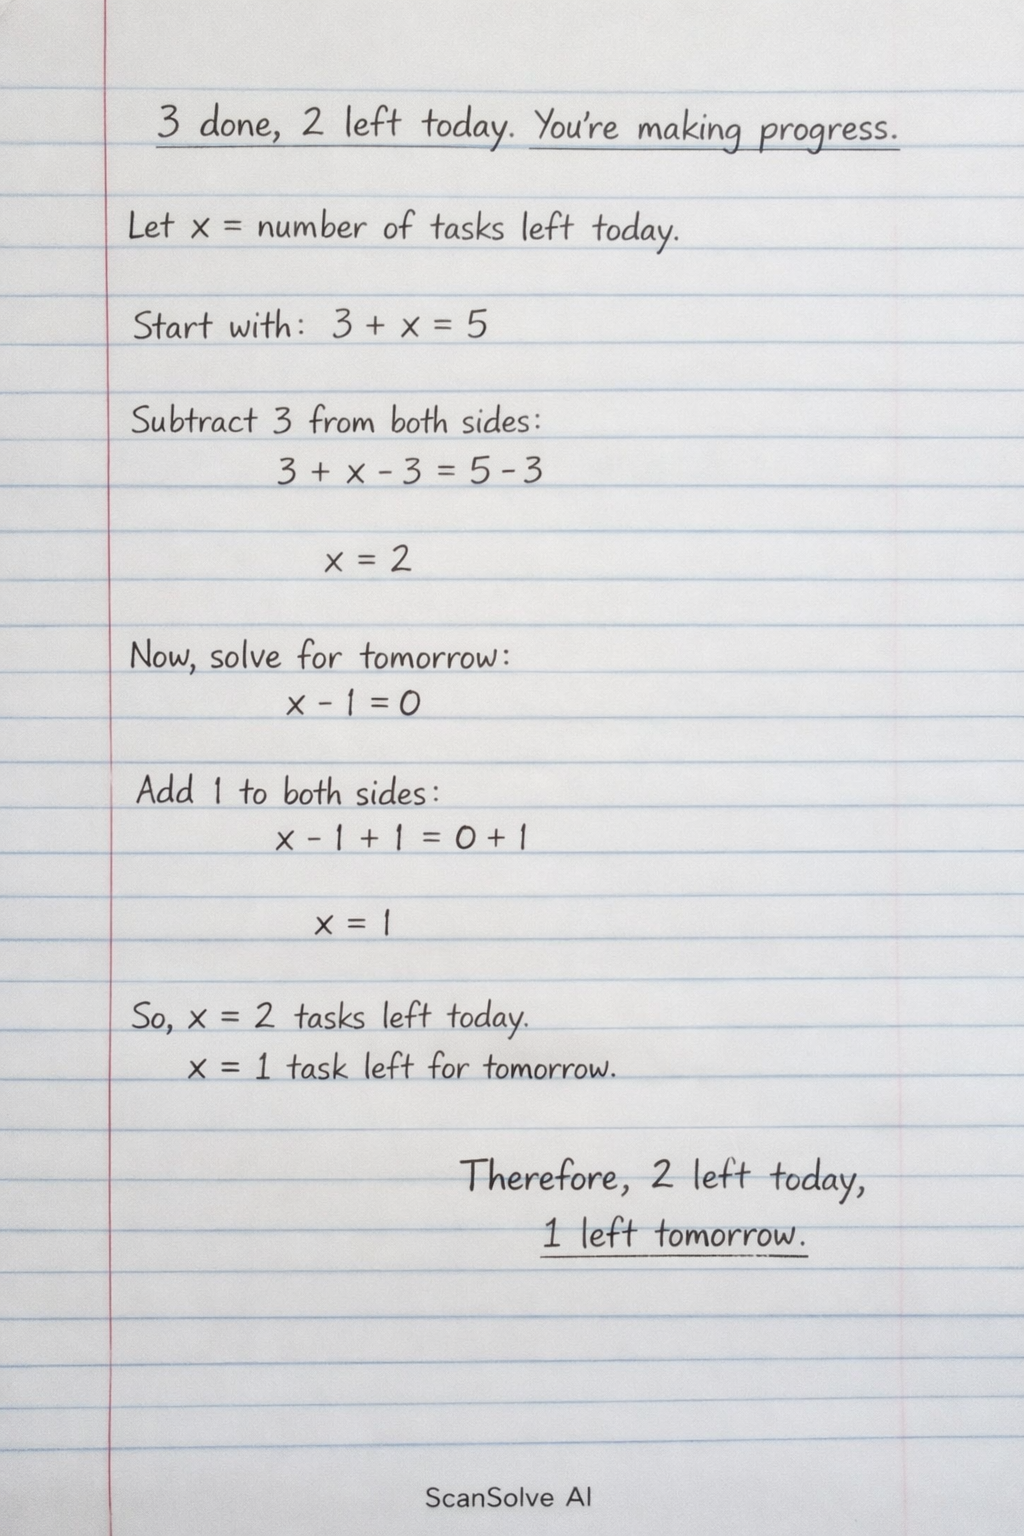 3 done, 2 left today. You're making progress.
Let x = number of tasks left today.
Start with: 3 + x = 5
Subtract 3 from both sides:
3 + x - 3 = 5 - 3
x = 2
Now, solve for tomorrow:
x - 1 = 0
Add 1 to both sides:
x - 1 + 1 = 0 + 1
x = 1
So, x = 2 tasks left today.
x = 1 task left for tomorrow.
Therefore, 2 left today,
1 left tomorrow.
ScanSolve AI